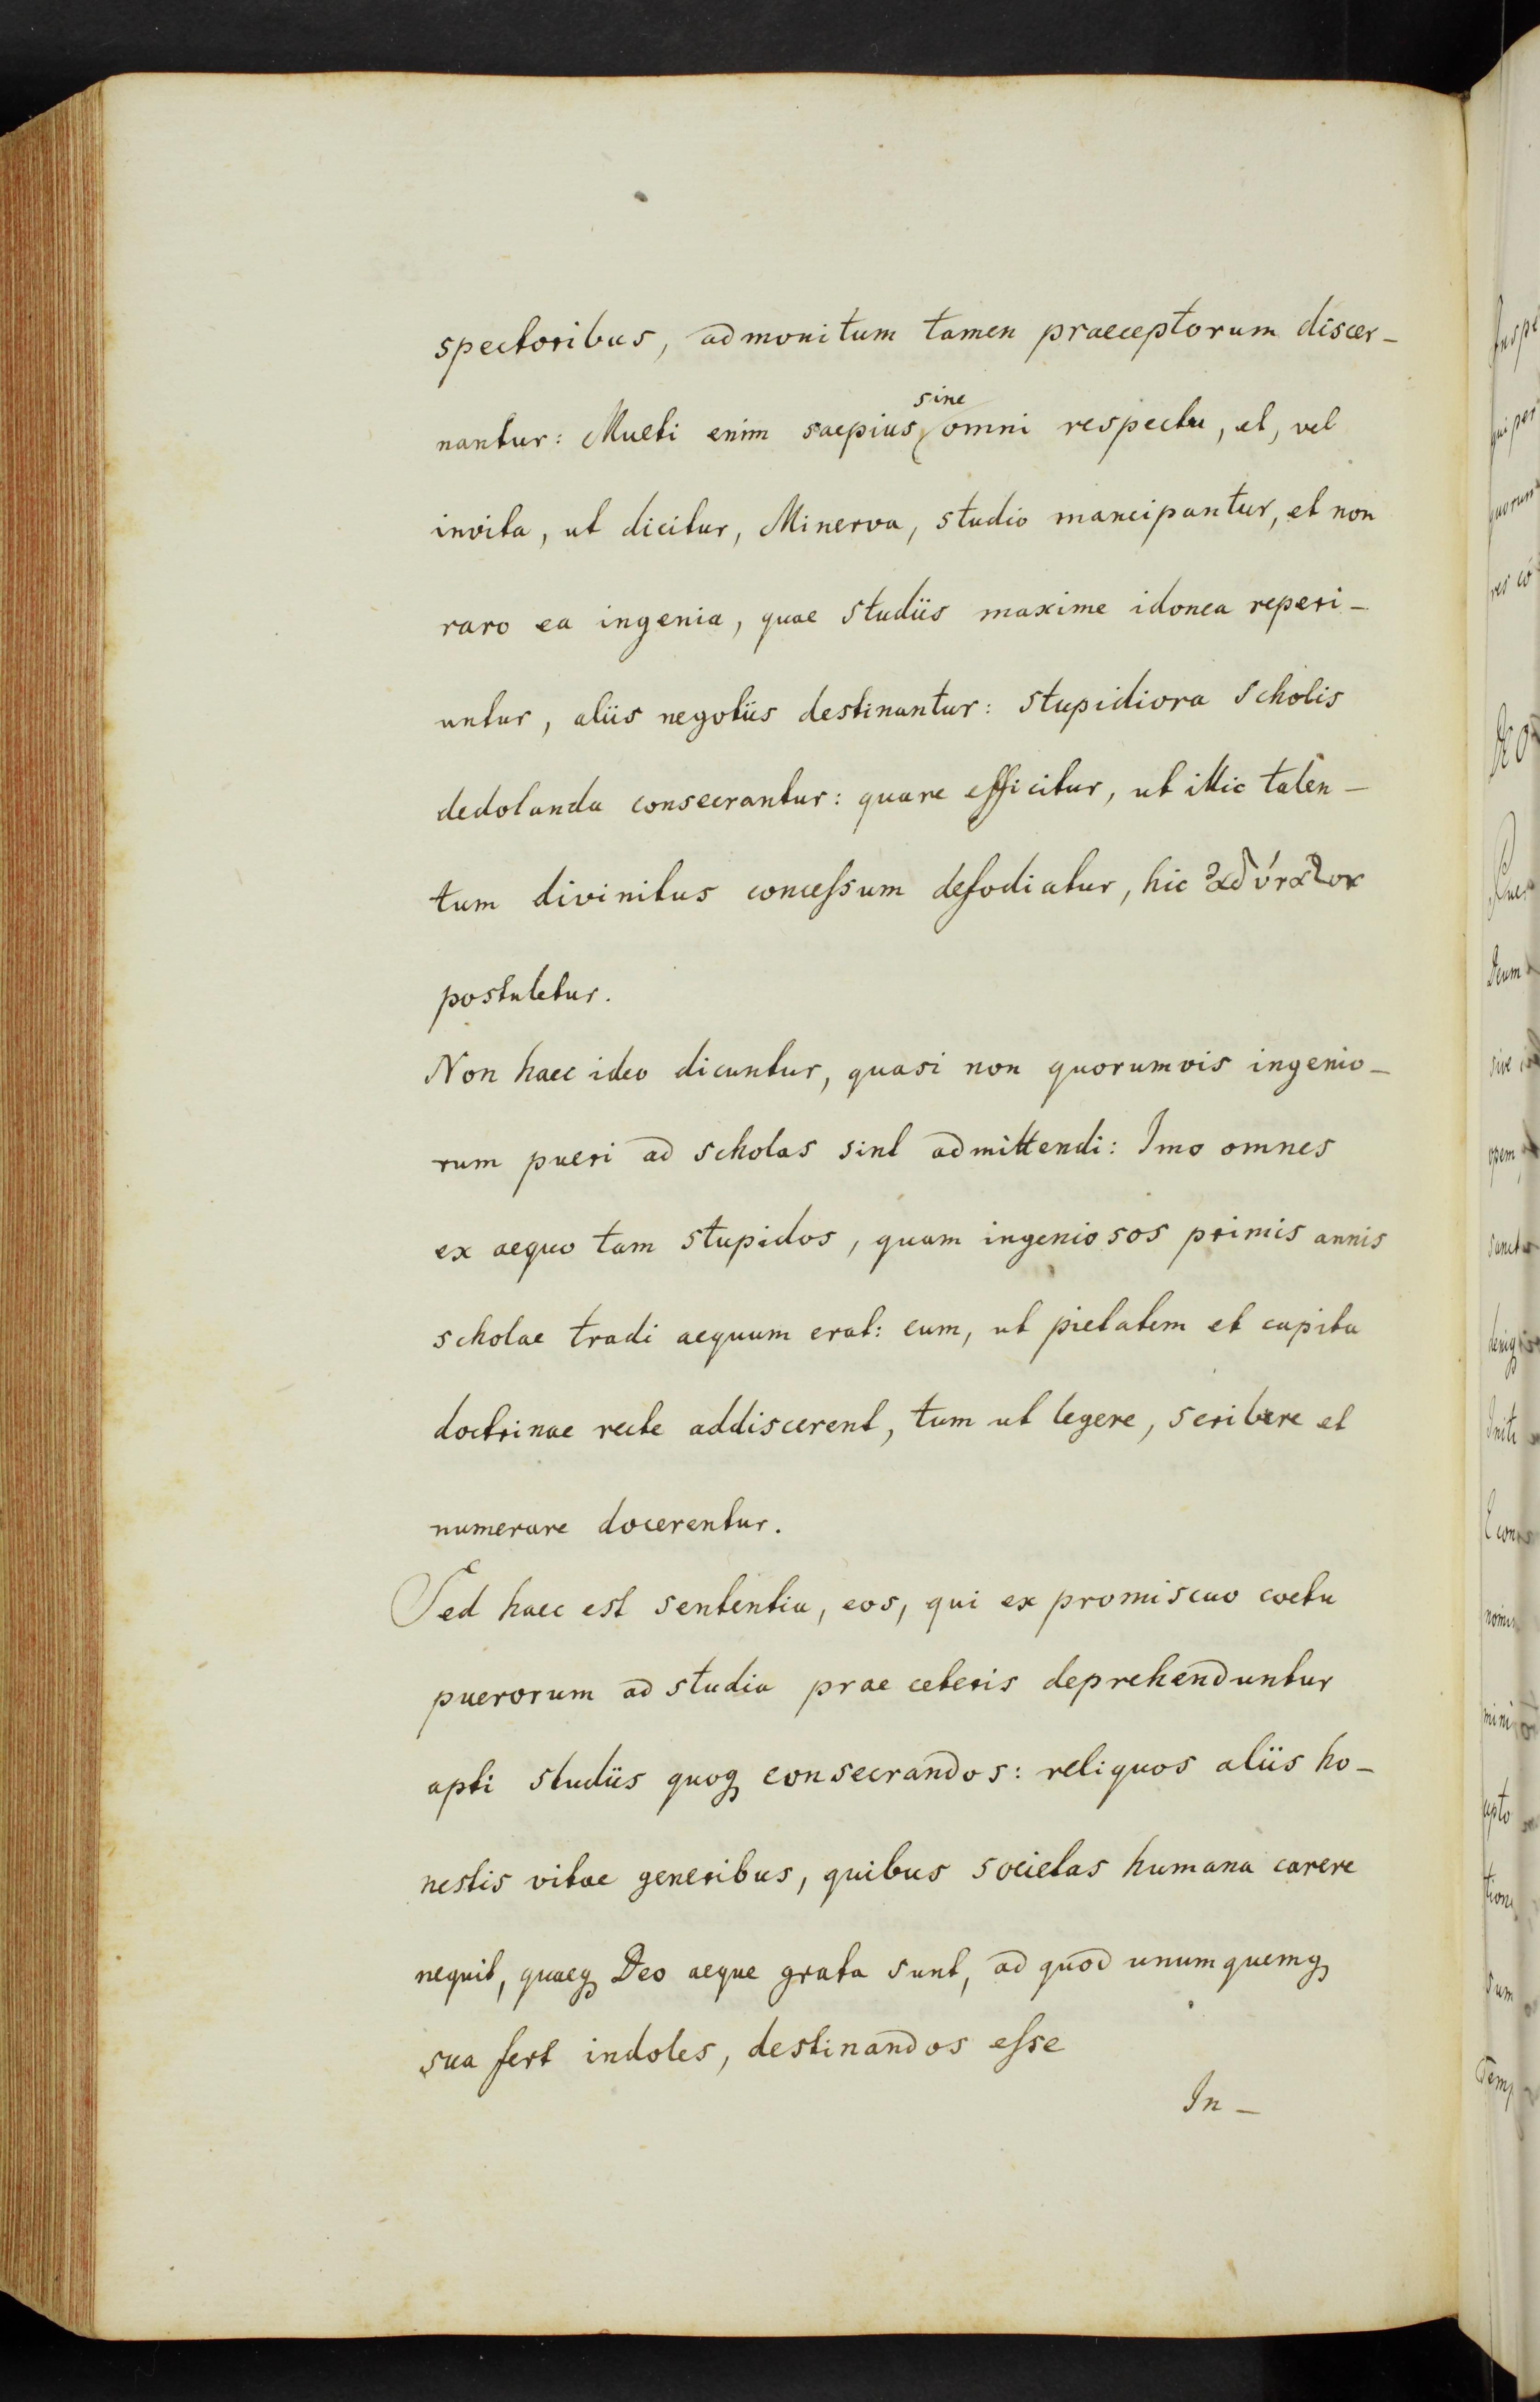 spectoribus, admonitum tamen praeceptorum discer-
nantur: Multi enim saepius sine omni respectu, et, vel
invita, ut dicitur, Minerva, studio mancipantur, et non
raro ea ingenia, quae studiis maxime idonea reperi-
untur, aliis negotiis destinantur: stupidiora scholis
dedolanda consecrantur: quare efficitur, ut illic talen-
tum divinitus concessum defodiatur, hic ἀδύνατον
postuletur.
Non haec ideo dicuntur, quasi non quorumvis ingenio-
rum pueri ad scholas sint admittendi: Imo omnes
ex aequo tam stupidos, quam ingeniosos primis annis
scholae tradi aequum erat: cum, ut pietatem et capita
doctrinae recte addiscerent, tum ut legere, scribere et
numerare docerentur.
Sed haec est sententia, eos, qui ex promiscuo coetu
puerorum ad studia prae ceteris deprehenduntur
apti studiis quoq consecrandos: reliquos aliis ho-
nestis vitae generibus, quibus societas humana carere
nequit, quaeq Deo aeque grata sunt, ad quod unumquemq
sua fert indoles, destinandos esse
In-